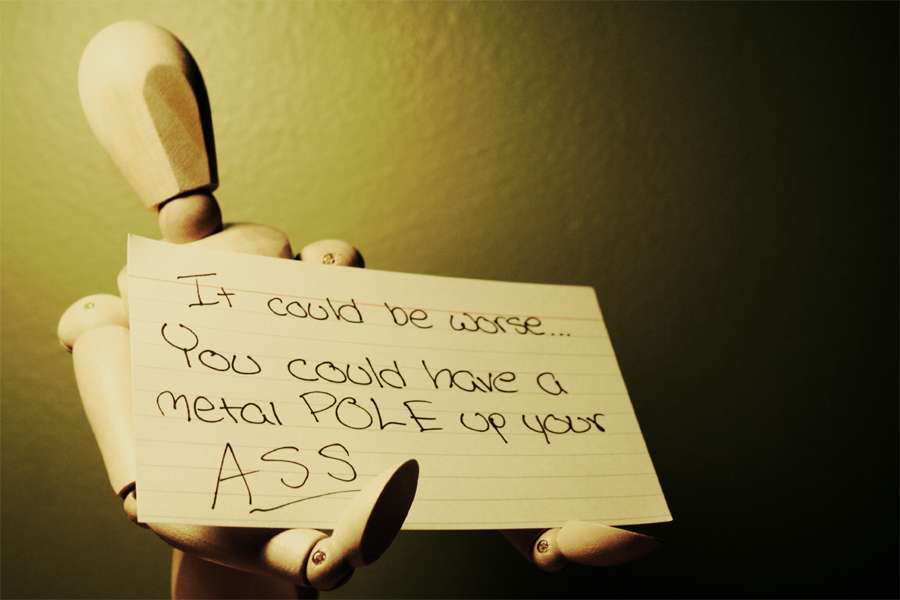 It could be worse...
You could have a
metal POLE up your
ASS